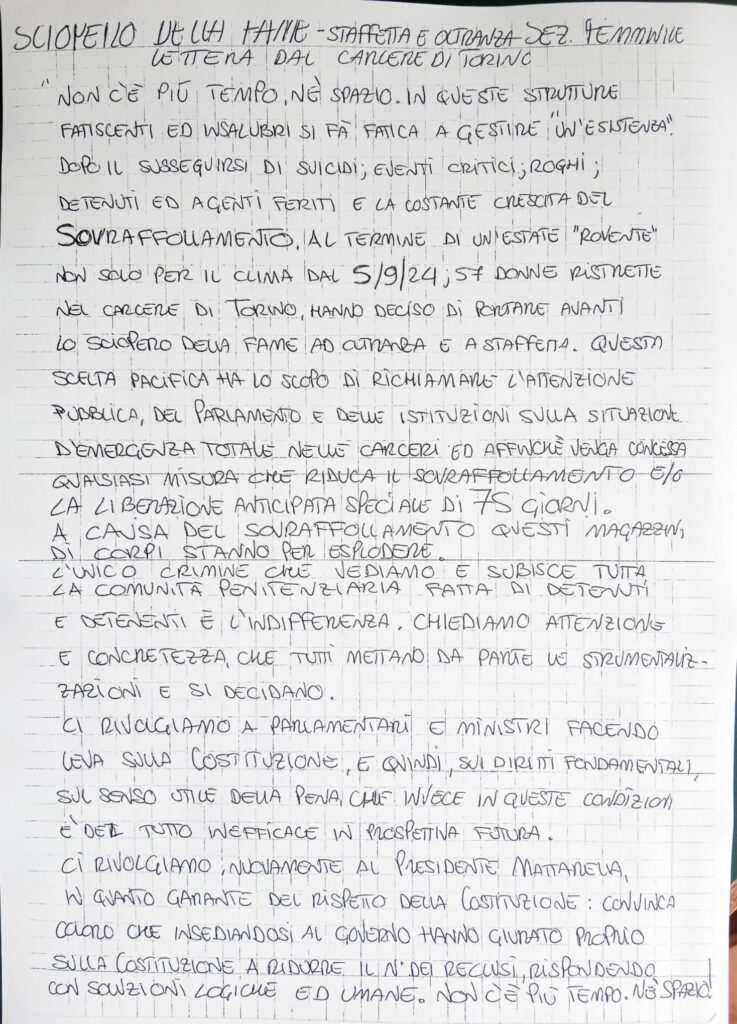 SCIOPERO DELLA FAME - STAFFETTA E OLTRANZA SEZ. FEMMINILE
LETTERA DAL CARCERE DI TORINO
"NON C'È PIÙ TEMPO, NÈ SPAZIO. IN QUESTE STRUTTURE
FATISCENTI ED INSALUBRI SI FÀ FATICA A GESTIRE "UN'ESISTENZA".
DOPO IL SUSSEGUIRSI DI SUICIDI; EVENTI CRITICI; ROGHI;
DETENUTI ED AGENTI FERITI E LA COSTANTE CRESCITA DEL
SOVRAFFOLLAMENTO, AL TERMINE DI UN'ESTATE "ROVENTE"
NON SOLO PER IL CLIMA DAL 5/9/24, 57 DONNE RISTRETTE
NEL CARCERE DI TORINO, HANNO DECISO DI PORTARE AVANTI
LO SCIOPERO DELLA FAME AD OLTRANZA E A STAFFETTA. QUESTA
SCELTA PACIFICA HA LO SCOPO DI RICHIAMARE L'ATTENZIONE
PUBBLICA, DEL PARLAMENTO E DELLE ISTITUZIONI SULLA SITUAZIONE
D'EMERGENZA TOTALE NELLE CARCERI ED AFFINCHÈ VENGA CONCESSA
QUALSIASI MISURA CHE RIDUCA IL SOVRAFFOLLAMENTO E/O
LA LIBERAZIONE ANTICIPATA SPECIALE DI 75 GIORNI.
A CAUSA DEL SOVRAFFOLLAMENTO QUESTI MAGAZZINI
DI CORPI STANNO PER ESPLODERE.
L'UNICO CRIMINE CHE VEDIAMO E SUBISCE TUTTA
LA COMUNITÀ PENITENZIARIA FATTA DI DETENUTI
E DETENENTI È L'INDIFFERENZA. CHIEDIAMO ATTENZIONE
E CONCRETEZZA, CHE TUTTI METTANO DA PARTE LE STRUMENTALIZ-
ZAZIONI E SI DECIDANO.
CI RIVOLGIAMO A PARLAMENTARI E MINISTRI FACENDO
LEVA SULLA COSTITUZIONE, E QUINDI, SUI DIRITTI FONDAMENTALI,
SUL SENSO UTILE DELLA PENA, CHE INVECE IN QUESTE CONDIZIONI
E' DEL TUTTO INEFFICACE IN PROSPETTIVA FUTURA.
CI RIVOLGIAMO, NUOVAMENTE AL PRESIDENTE MATTARELLA,
IN QUANTO GARANTE DEL RISPETTO DELLA COSTITUZIONE: CONVINCA
COLORO CHE INSEDIANDOSI AL GOVERNO HANNO GIURATO PROPRIO
SULLA COSTITUZIONE A RIDURRE IL N° DEI RECLUSI, RISPONDENDO
CON SOLUZIONI LOGICHE ED UMANE. NON C'È PIÙ TEMPO. NÈ SPAZIO!